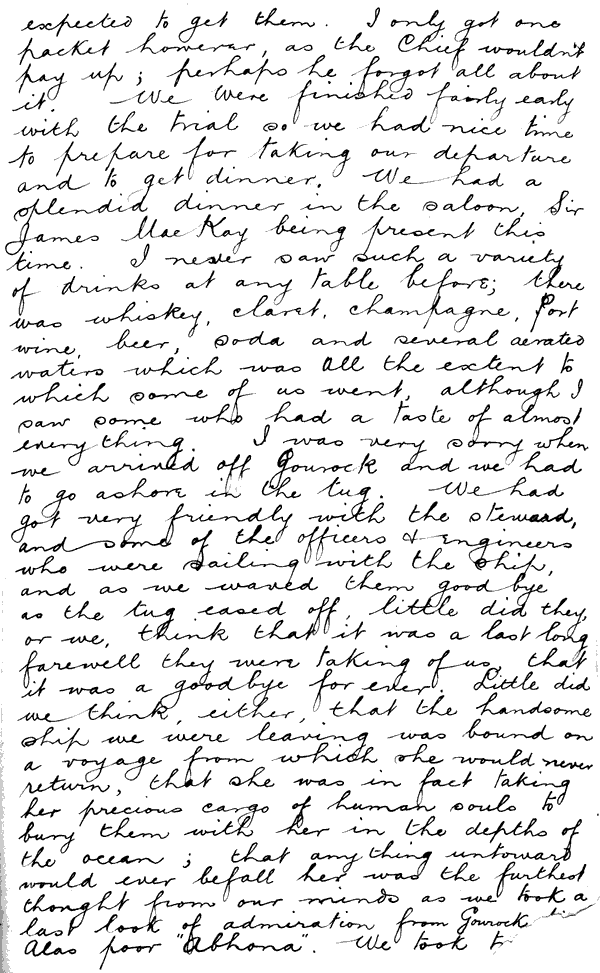 expected to get them. I only got one
packet however, as the Chief wouldn't
pay up; perhaps he forgot all about
it. We were finished fairly early
with the trial so we had nice time
to prepare for taking our departure
and to get dinner. We had a
splendid dinner in the saloon, Sir
James MacKay being present this
time. I never saw such a variety
of drinks at any table before; there
was whiskey, claret, champagne, Port
wine, beer, soda and several aerated
waters which was all the extent to
which some of us went, although I
saw some who had a taste of almost
everything. I was very sorry when
we arrived off Gourock and we had
to go ashore in the tug. We had
got very friendly with the steward,
and some of the officers & engineers
who were sailing with the ship,
and as we waved them good bye
as the tug eased off, little did they,
or we, think that it was a last long
farewell they were taking of us, that
it was a goodbye for ever. Little did
we think, either, that the handsome
ship we were leaving was bound on
a voyage from which she would never
return, that she was in fact taking
her precious cargo of human souls to
bury them with her in the depths of
the ocean; that anything untoward
would ever befall her was the furthest
thought from our minds as we took a
last look of admiration from Gourock
Alas poor "Abhona". We took